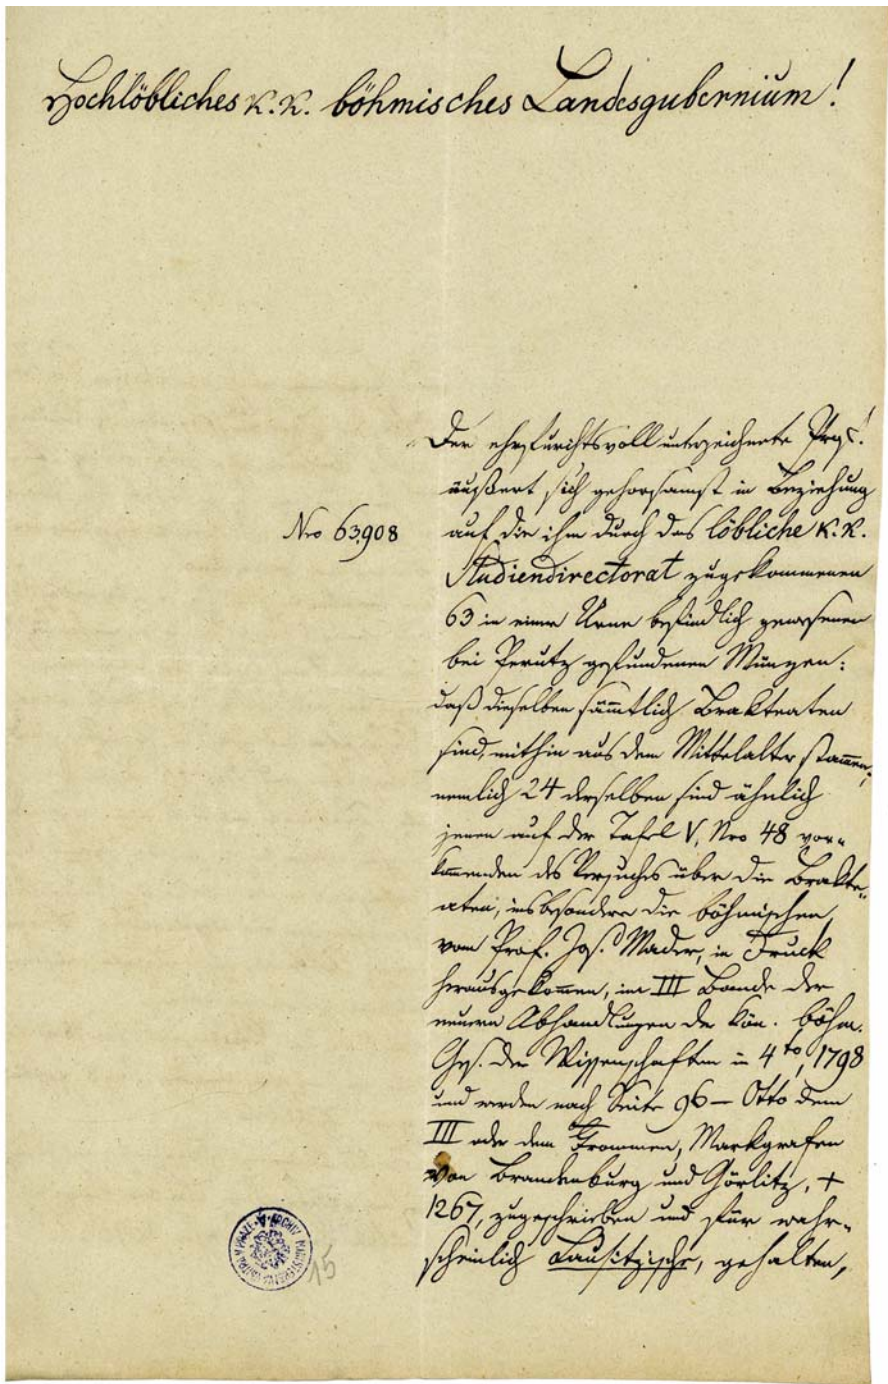 Hochlöbliches K. K. böhmisches Landesgubernium!
Der ehrfurchtsvoll unterzeichnete
äußert sich gehorsamst in Beziehung
Nro 63,908
auf die ihm durch das löbliche K. K.
Studiendirectorat zugekommenen
63 in einer Urne befindlich gewesenen
bei Perutz gefundenen Münzen:
daß dieselben sämmtlich Brakteaten
sind, mithin aus dem Mittelalter stammen;
nemlich 24 derselben sind ähnlich
jenen auf der Tafel V, Nro 48 vor-
kommenden des Versuches über die Brakte-
aten, insbesondere die böhmischen,
vom Prof. Jos. Mader, in Druck
herausgekommen, im III Bande der
neuern Abhandlungen der kön. böhm.
Ges. der Wissenschaften in 4to, 1798
und werden nach Seite 96 — Otto dem
III oder dem Frommen, Markgrafen
von Brandenburg und Görlitz, +
1267, zugeschrieben und für wahr-
scheinlich Lausitzische, gehalten,
15